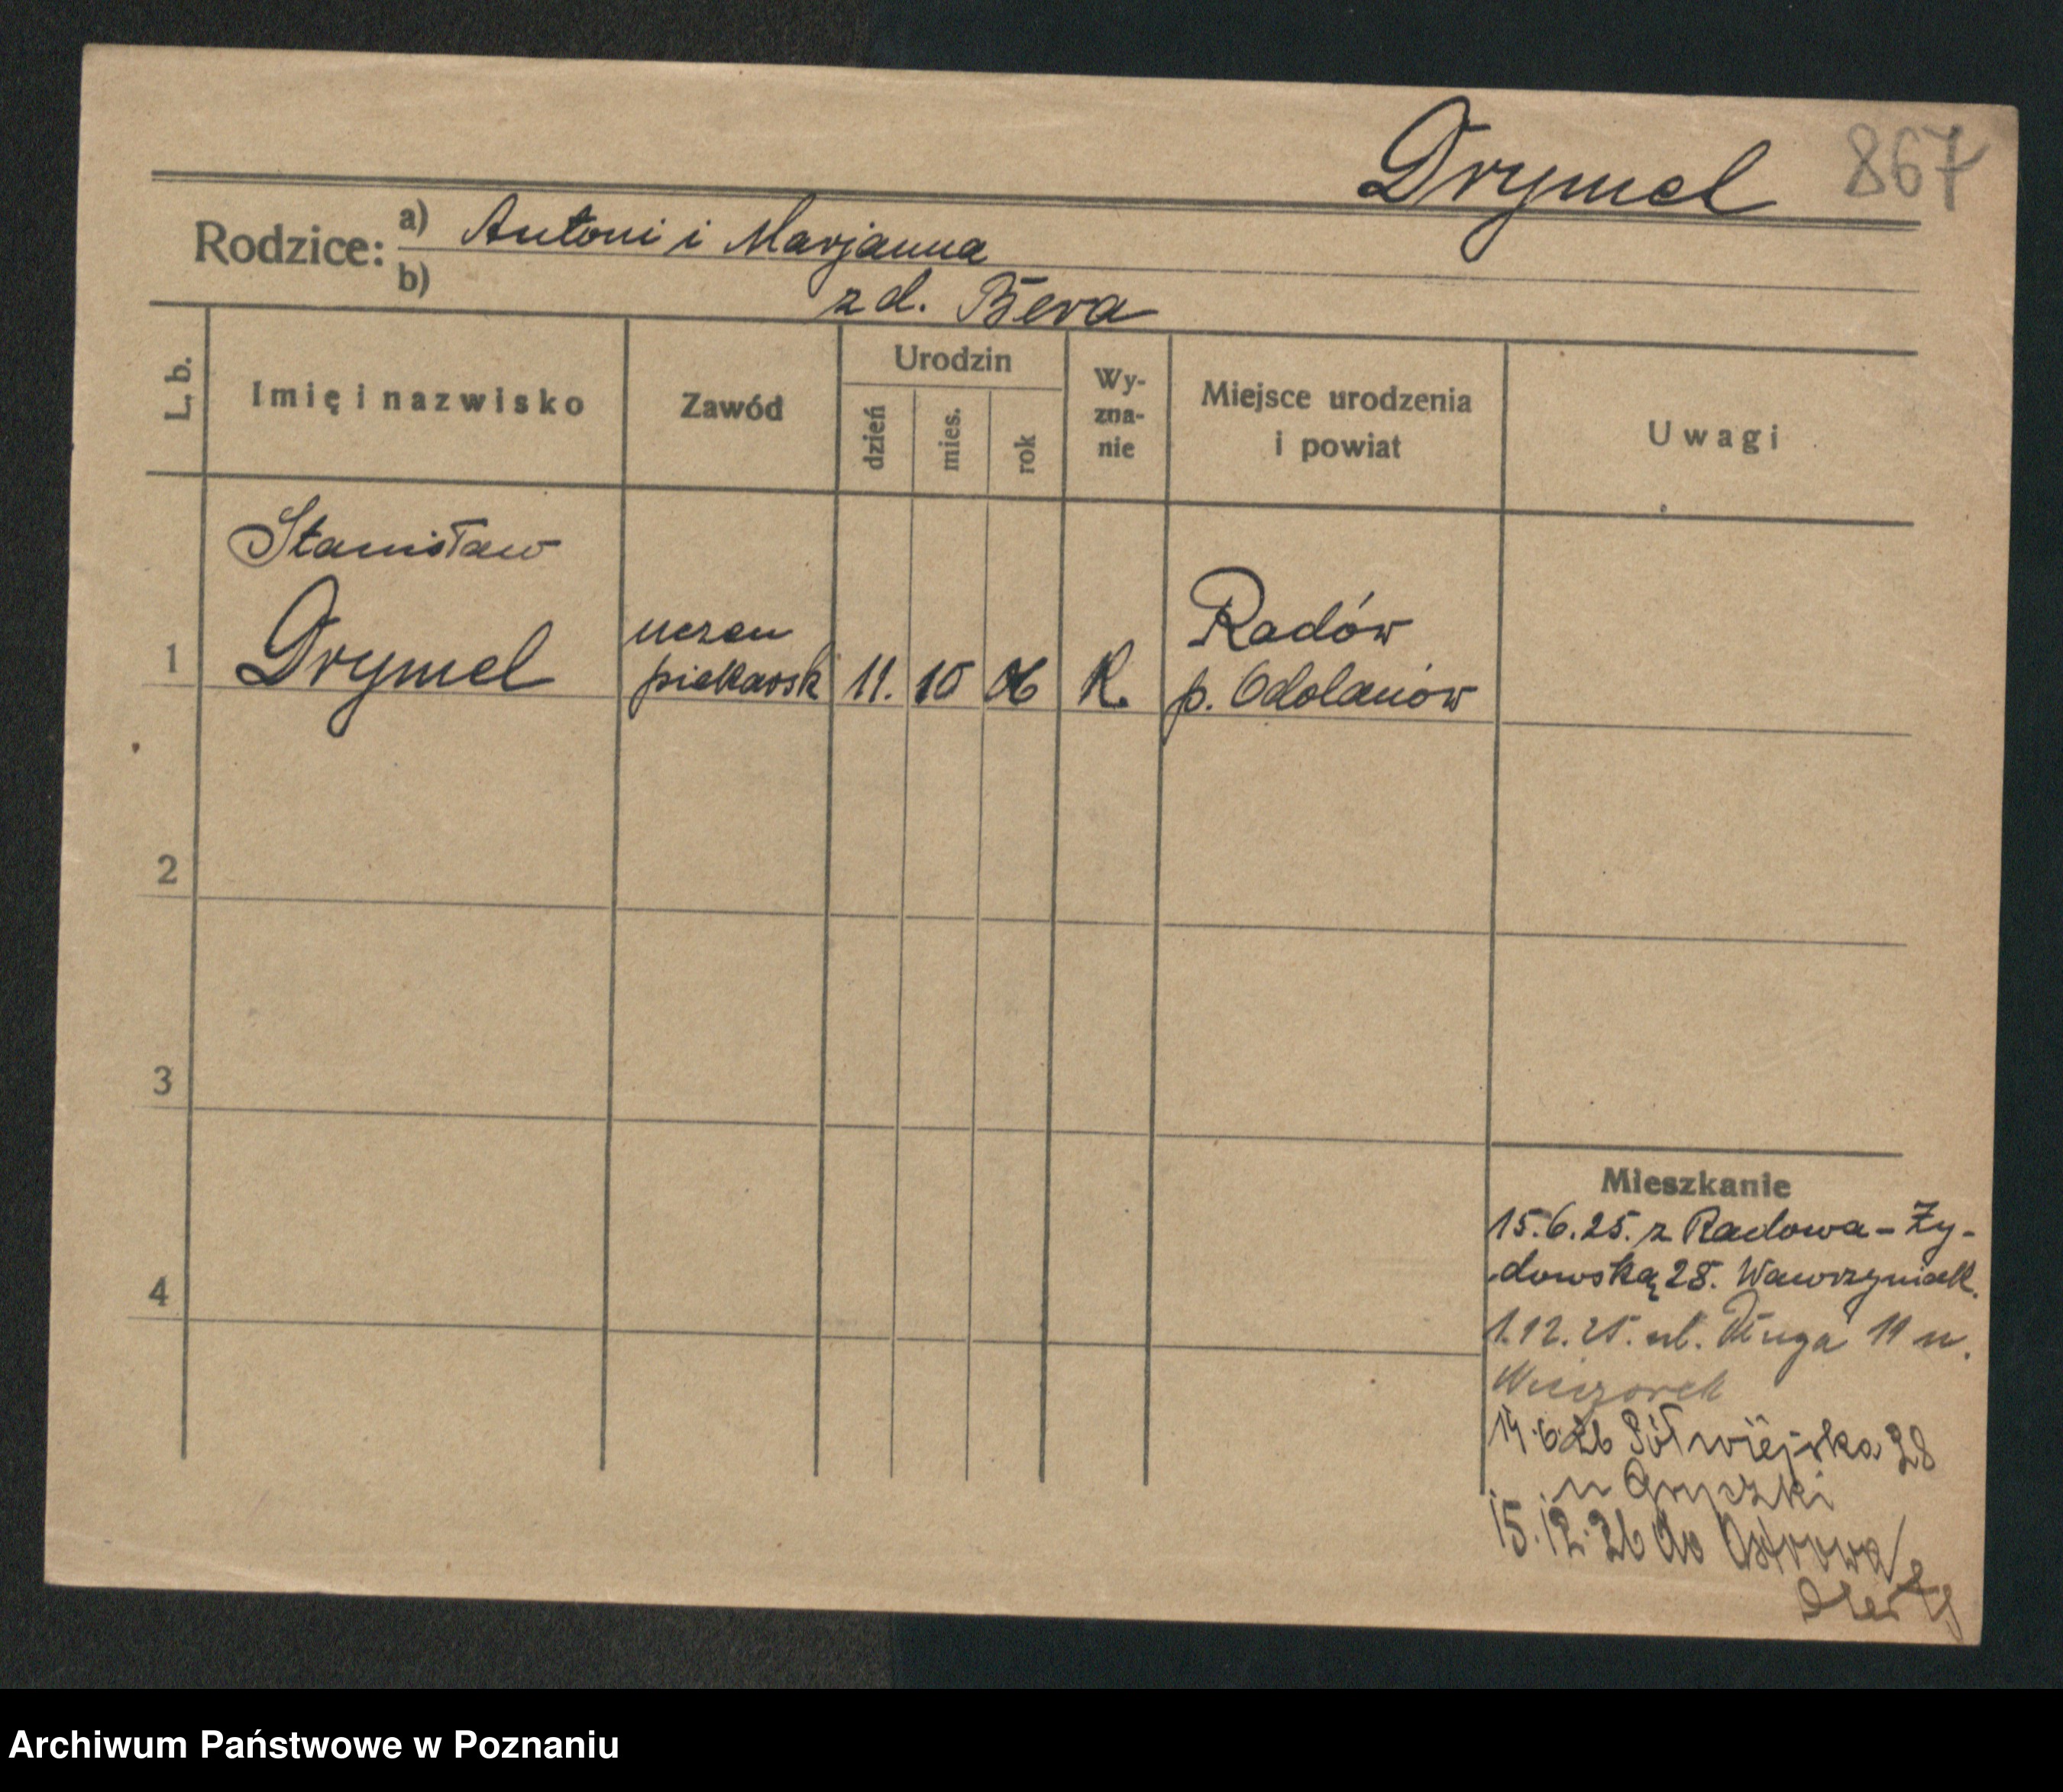 Drymel 867
Rodzice: a) Antoni i Marjanna
b) z d. Bera
L. b.
Imię i nazwisko
Zawód
Urodzin
dzień
mies.
rok
Wy-
zna-
nie
Miejsce urodzenia
i powiat
Uwagi
Stanisław
1 Drymel
uczeń
piekarsk
11. 10 06 K.
Radów
p. Odolanów
2
3
4
Mieszkanie
15.6.25. z Radowa - Ży-
dowską 28. Wawrzyniak.
1.12.25. ul. Długa 11 u.
Wieczorek
14.6.26 Półwiejska 28
u Gryczki
15.12.26 do Ostrowa
Archiwum Państwowe w Poznaniu